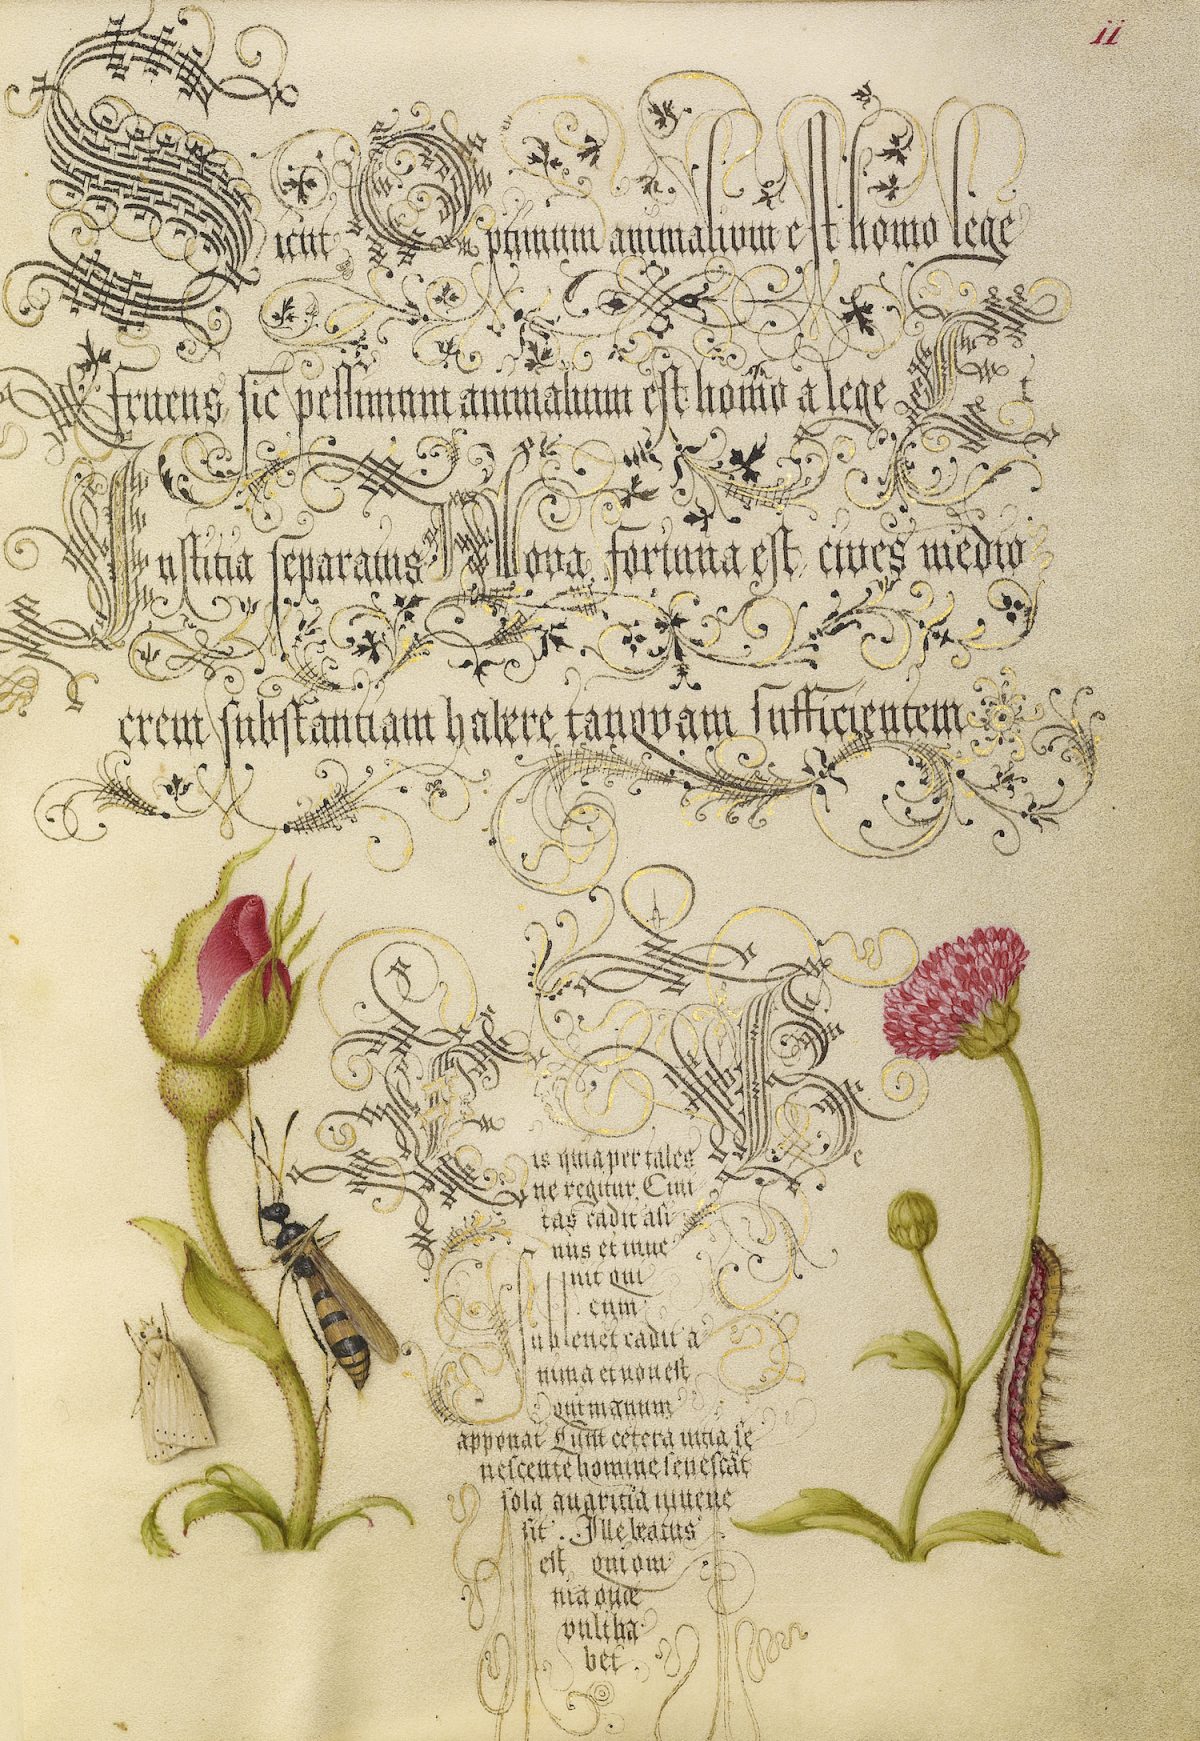 ii
Sicut Optimum animalium est homo lege
fruens sic pessimum animalium est homo a lege Et
Iustitia separatus Bona fortuna est cives medio
crem substantiam habere tanqvam sufficientem
Re
is quia per tales
ne regitur. Civi
tas cadit asi
nus et inve
nit qui
cum
sublevet cadit a
nima et non est
qui manum
apponat Cum cetera vitia se
nescente homine senescãt
sola avaritia iuvene
sit. Ille beatus
est qui om
nia quæ
vult ha
bet.